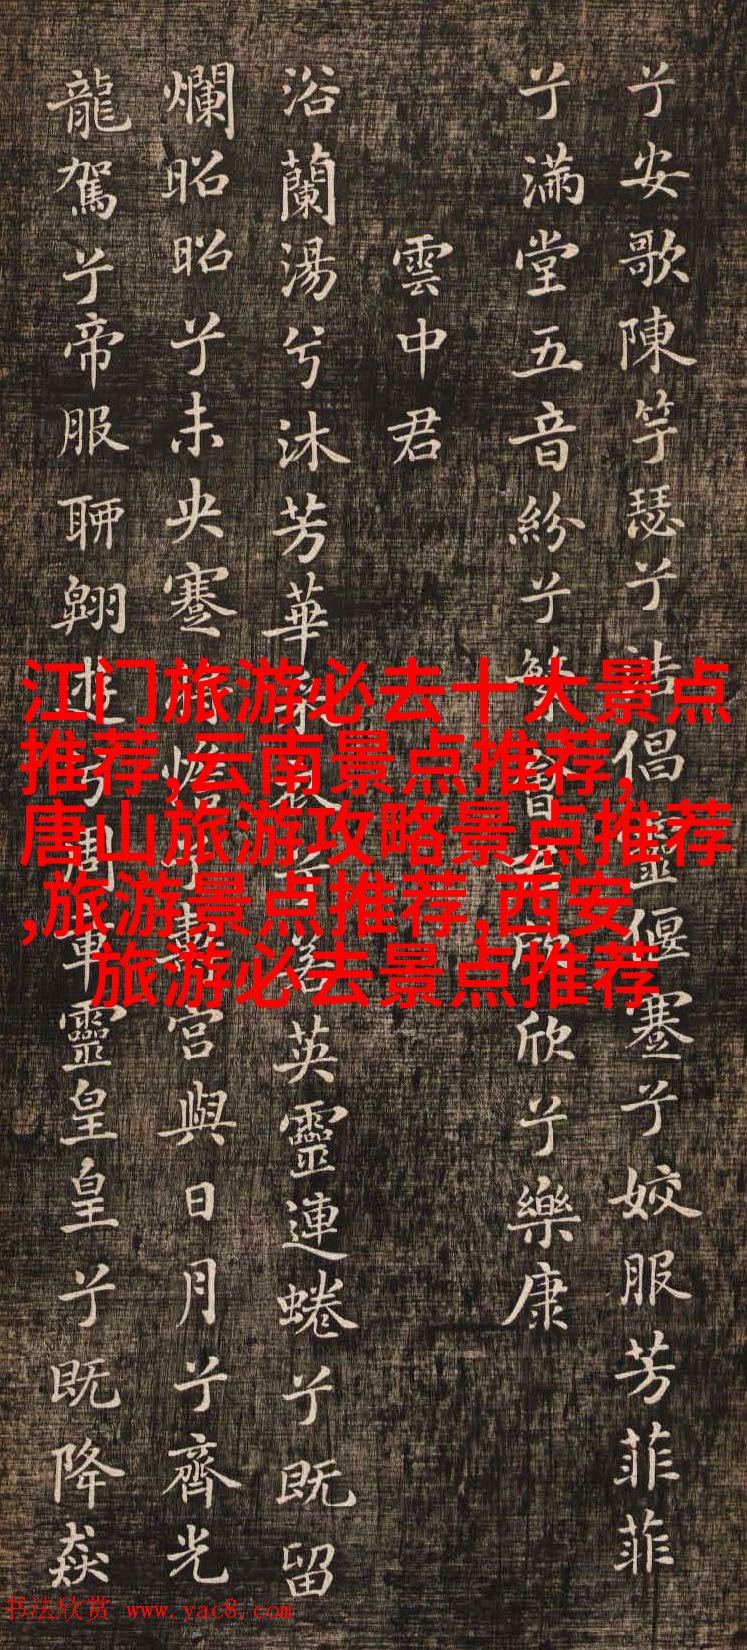 兮安歌陳竽瑟兮浩倡靈偃蹇兮姣服芳菲菲
兮滿堂五音紛兮繁會君欣欣兮樂康
雲中君
浴蘭湯兮沐芳華采衣兮若英靈連蜷兮既留
爛昭昭兮未央蹇 憺兮壽宮與日月兮齊光
龍駕兮帝服聊翱遊兮周章靈皇皇兮既降猋
江门旅游必去十大景点
推荐,云南景点推荐,
唐山旅游攻略景点推荐
,旅游景点推荐,西安
旅游必去景点推荐
书法欣赏 www.yac8.com